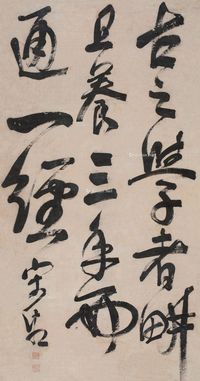 古之學者畊
且養三年而
通一經
宋